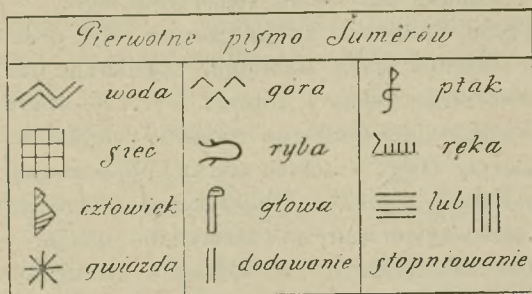 Pierwotne pismo Sumerów
woda góra ptak
sieć ryba ręka
człowiek głowa lub
gwiazda dodawanie stopniowanie